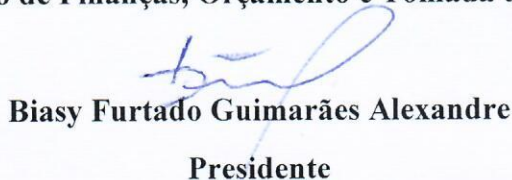 de Finanças, Orçamento e Tomada
Biasy Furtado Guimarães Alexandre
Presidente